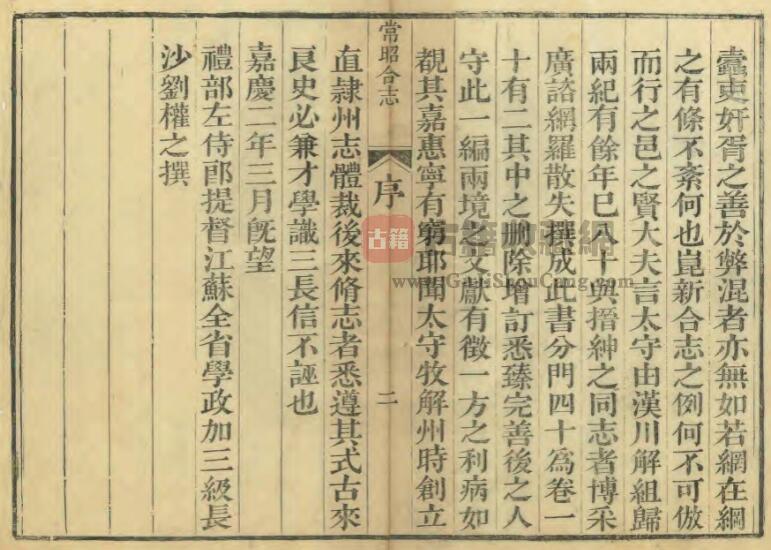 蠹吏奸胥之善於弊混者亦無如若網在綱
之有條不紊何也崑新合志之例何不可倣
而行之邑之賢大夫言太守由漢川解組歸
兩紀有餘年巳八十與搢紳之同志者博采
廣諮網羅散失撰成此書分門四十爲卷一
十有二其中之刪除增訂悉臻完善後之人
守此一編兩境之文獻有徵一方之利病如
觀其嘉惠寧有窮耶聞太守牧解州時創立
常昭合志
序
二
直隷州志體裁後來脩志者悉遵其式古來
良史必兼才學識三長信不誣也
嘉慶二年三月旣望
禮部左侍郎提督江蘇全省學政加三級長
沙劉權之撰
古籍
www.GuJiShouCang.com